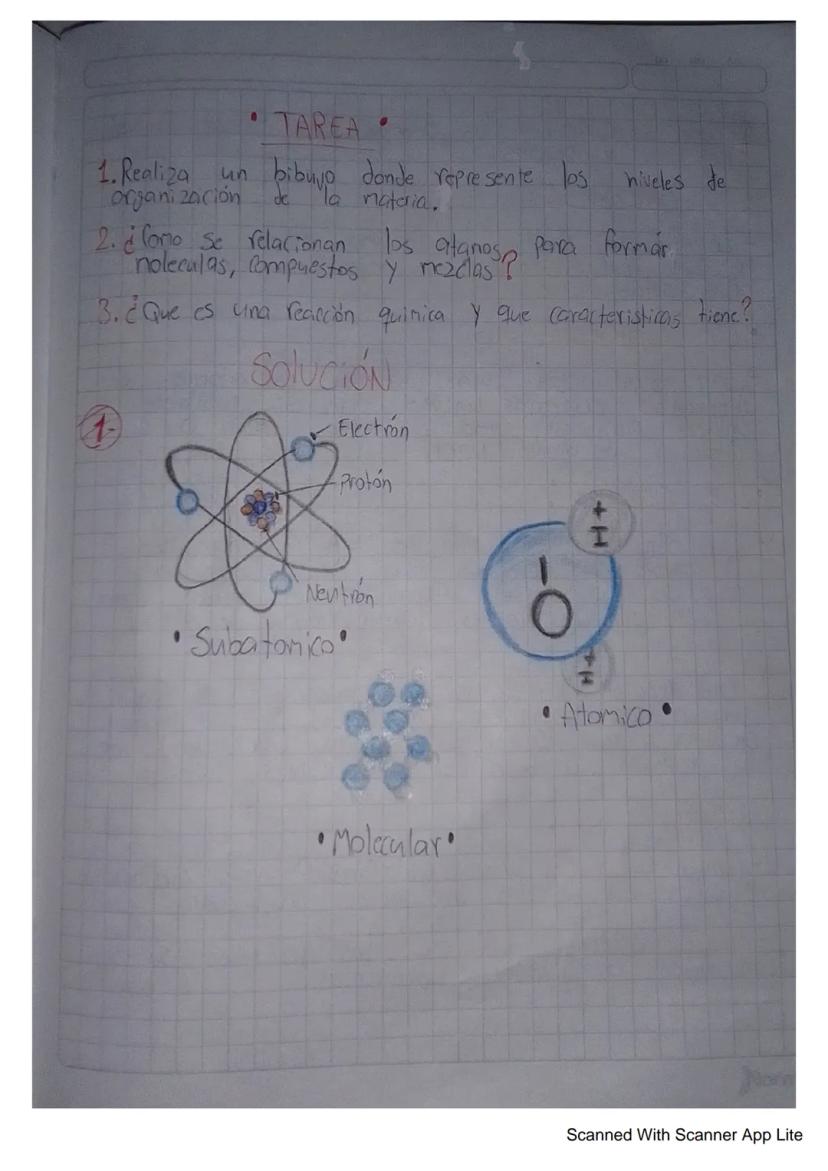 • TAREA •
1. Realiza un bibujo donde represente los niveles de
organización de la materia.
2. ¿Como se relacionan los atanos? para formár
noleculas, compuestos y mezclas?
3. ¿Que es una reacción quinica y que caracteristicas tiene?
SOLUCIÓN
1-
Electrón
Protón
Neutrón
• Subatomico •
+
H
-
O
+
H
• Atomico •
• Molecular •
Norm
Scanned With Scanner App Lite